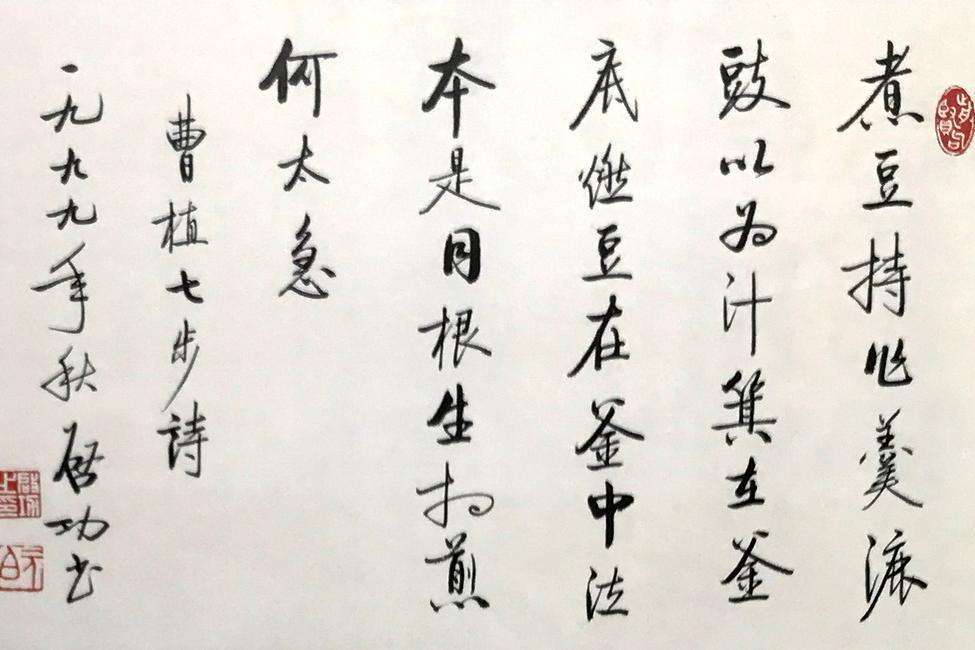 煮豆持作羹漉
豉以為汁箕在釜
底燃豆在釜中泣
本是同根生相煎
何太急
曹植七步詩
一九九九年秋啟功書